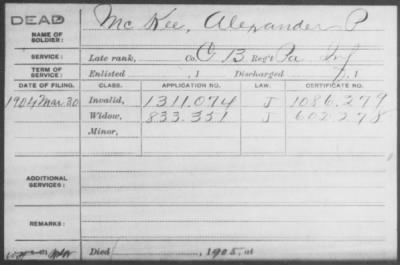 DEAD
NAME OF SOLDIER: McKee, Alexander P
SERVICE: Late rank, Co. C 13 Reg't Pa Inf
TERM OF SERVICE: Enlisted , 1 Discharged , 1
DATE OF FILING. CLASS. APPLICATION NO. LAW. CERTIFICATE NO.
1904 Mar 30 Invalid, 1311.074 J 1086.279
Widow, 833.351 J 602.278
Minor,
ADDITIONAL SERVICES:
REMARKS:
Died , 1905, at